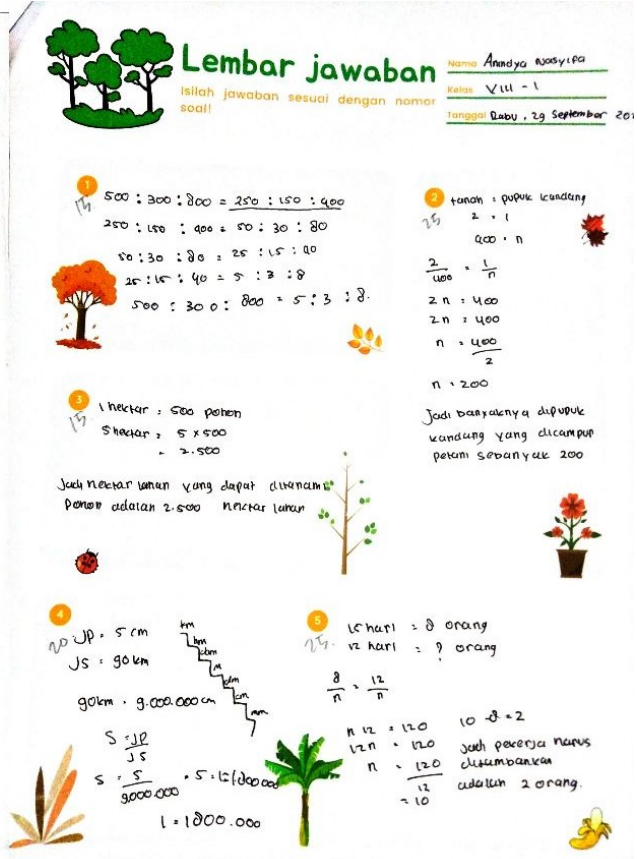 Lembar jawaban
Isilah jawaban sesuai dengan nomor
soal!
Nama Anindya Nasyifa
Kelas VIII - 1
Tanggal Rabu, 29 September 202
1
15
500 : 300 : 800 = 250 : 150 : 400
250 : 150 : 400 = 50 : 30 : 80
50 : 30 : 80 = 25 : 15 : 40
25 : 15 : 40 = 5 : 3 : 8
500 : 300 : 800 = 5 : 3 : 8.
2
25
tanah : pupuk kandang
2 : 1
400 : n
2/400 = 1/n
2n = 400
2n = 400
n = 400/2
n = 200
Jadi banyaknya dipupuk
kandang yang dicampur
petani sebanyak 200
3
15
1 hektar = 500 pohon
5 hektar = 5 x 500
= 2.500
Jadi hektar lahan yang dapat ditanami
Pohon adalah 2.500 hektar lahan
4
20
JP = 5 cm
JS = 90 km
km
hm
dam
m
dm
cm
mm
90km = 9.000.000 cm
S = JP/JS
S = 5/9.000.000 = 5 = 1 = 1800000
1 = 1800.000
5
25.
15 hari = 8 orang
12 hari = ? orang
8/n = 12/n
n 12 = 120
12n = 120
n = 120/12
= 10
10 - 8 = 2
Jadi pekerja harus
ditambahkan
adalah 2 orang.